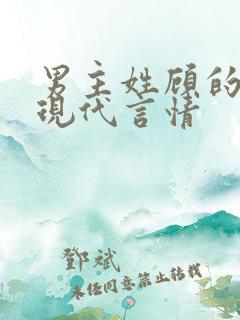 男主姓顾的
現代言情
鄧斌
未经同意禁止转载